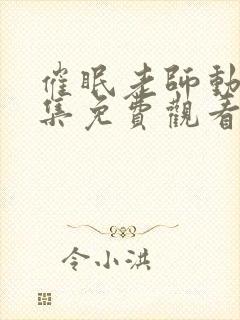 催眠老師動
集免費觀看
令小洪